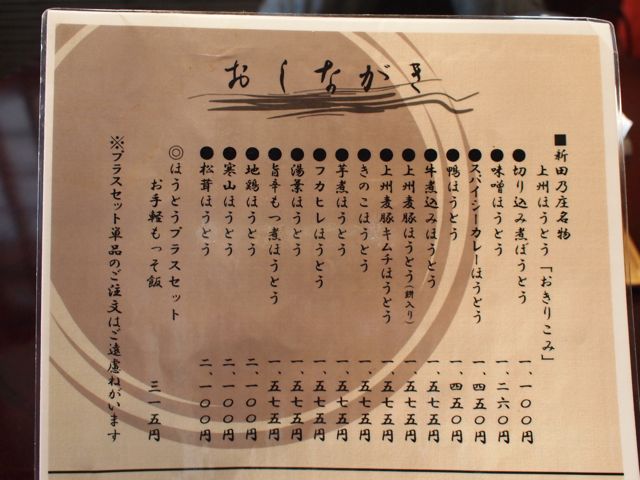 おしながき
■新田乃庄名物
上州ほうとう「おきりこみ」
●切り込み煮ぼうとう 一、一〇〇円
●味噌ほうとう 一、二六〇円
●スパイシーカレーほうとう 一、四五〇円
●鴨ほうとう 一、四五〇円
●牛煮込みほうとう 一、五七五円
●上州麦豚ほうとう(餅入り) 一、五七五円
●上州麦豚キムチほうとう 一、五七五円
●きのこほうとう 一、五七五円
●芋煮ほうとう 一、五七五円
●フカヒレほうとう 一、五七五円
●湯葉ほうとう 一、五七五円
●旨辛もつ煮ほうとう 一、五七五円
●地鶏ほうとう 二、一〇〇円
●寒山ほうとう 二、一〇〇円
●松茸ほうとう 二、一〇〇円
◎ほうとうプラスセット
お手軽もっそ飯 三一五円
※プラスセット単品のご注文はご遠慮ねがいます